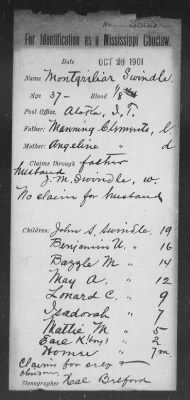 No. 5565
For Identification as a Mississippi Choctaw.
Date OCT 29 1901
Name Montgriliar Swindle
Age 37- Blood 1/8
Post Office, Alaska, I.T.
Father: Manning Clements, l.
Mother: Angeline " d
Claims through father
husband
J.M. Swindle, w.
No claim for husband
Children: John S. Swindle. 19
Benjamin U. " 16
Bazzle M " 14
May A. " 12
Lonard C. " 9
Isadorah " 7
Mattie M. " 5
Earl K. (boy) " 2
Homer " 7m.
Claims for 
children.
Stenographer Hal Belford